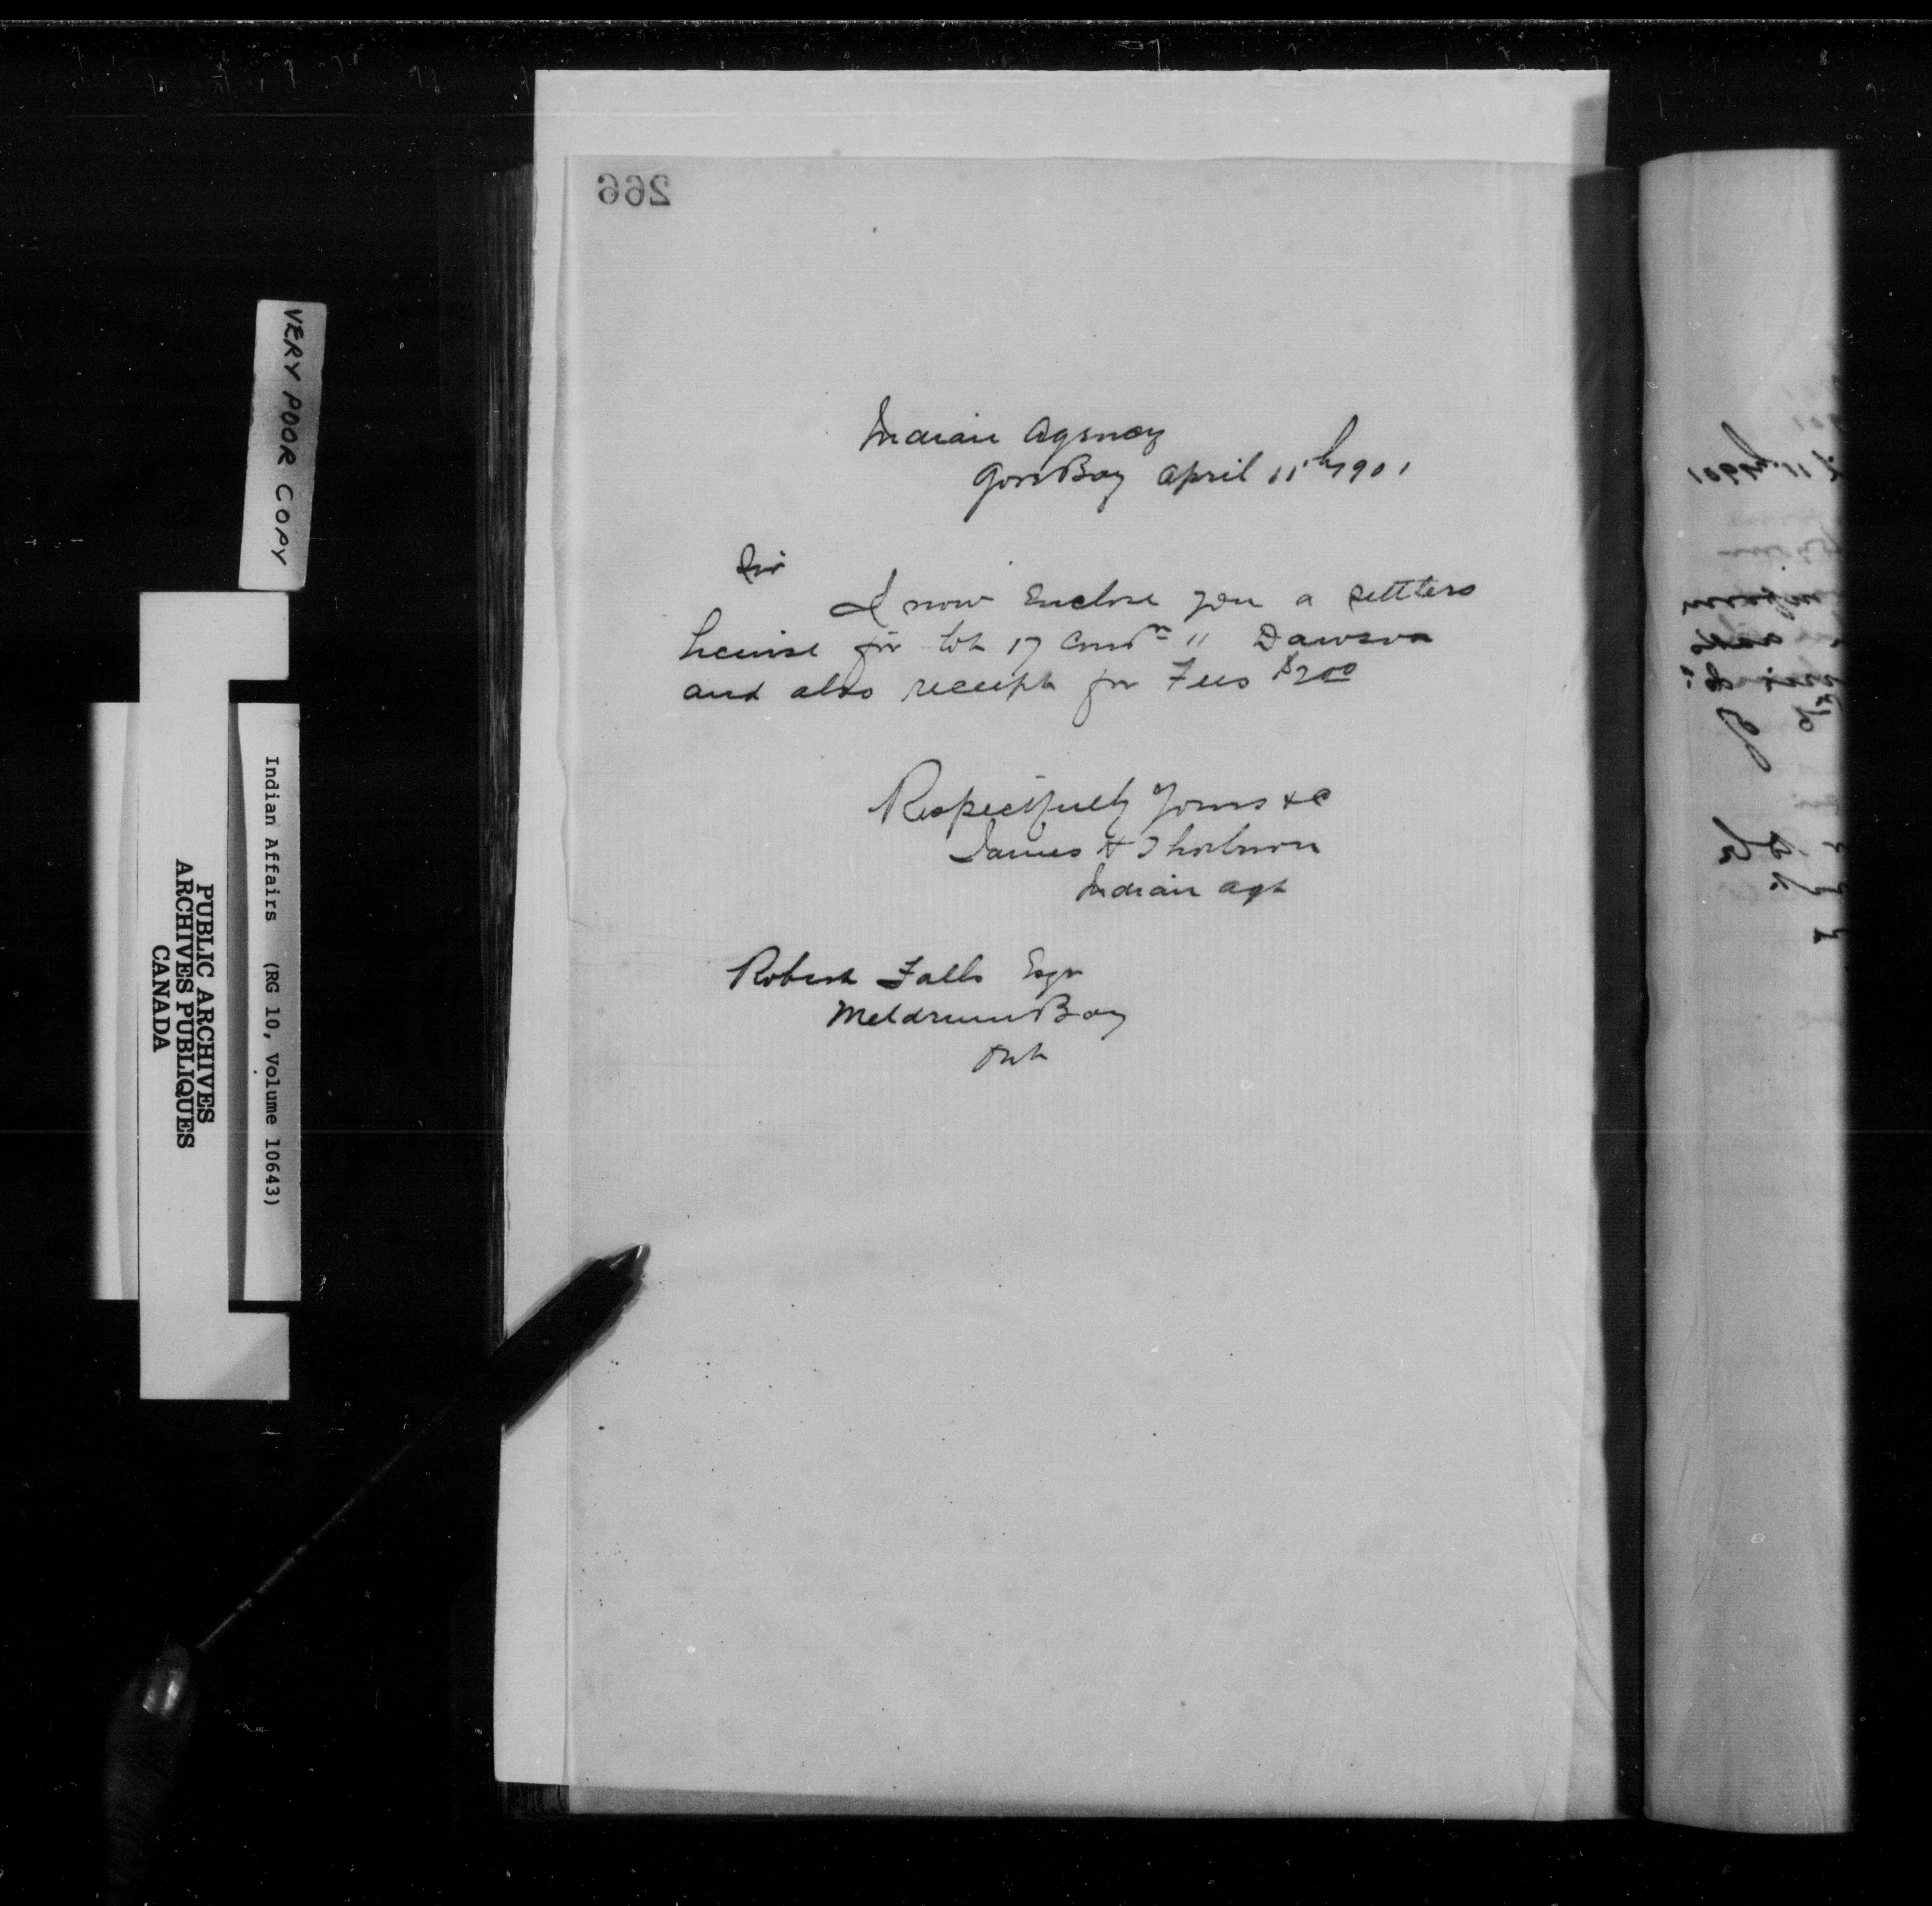 266
Indian Agency
Gore Bay April 11th 1901
Sir
I now Enclose you a settlers
license for Lot 17 Conn 11 Dawson
and also receipt for Fees $2.00
Respectfully Yours &c
James H Thorburn
Indian Agt
Robert Falls Esqr
Meldrum Bay
Ont
VERY POOR COPY
Indian Affairs (RG 10, Volume 10643)
PUBLIC ARCHIVES
ARCHIVES PUBLIQUES
CANADA